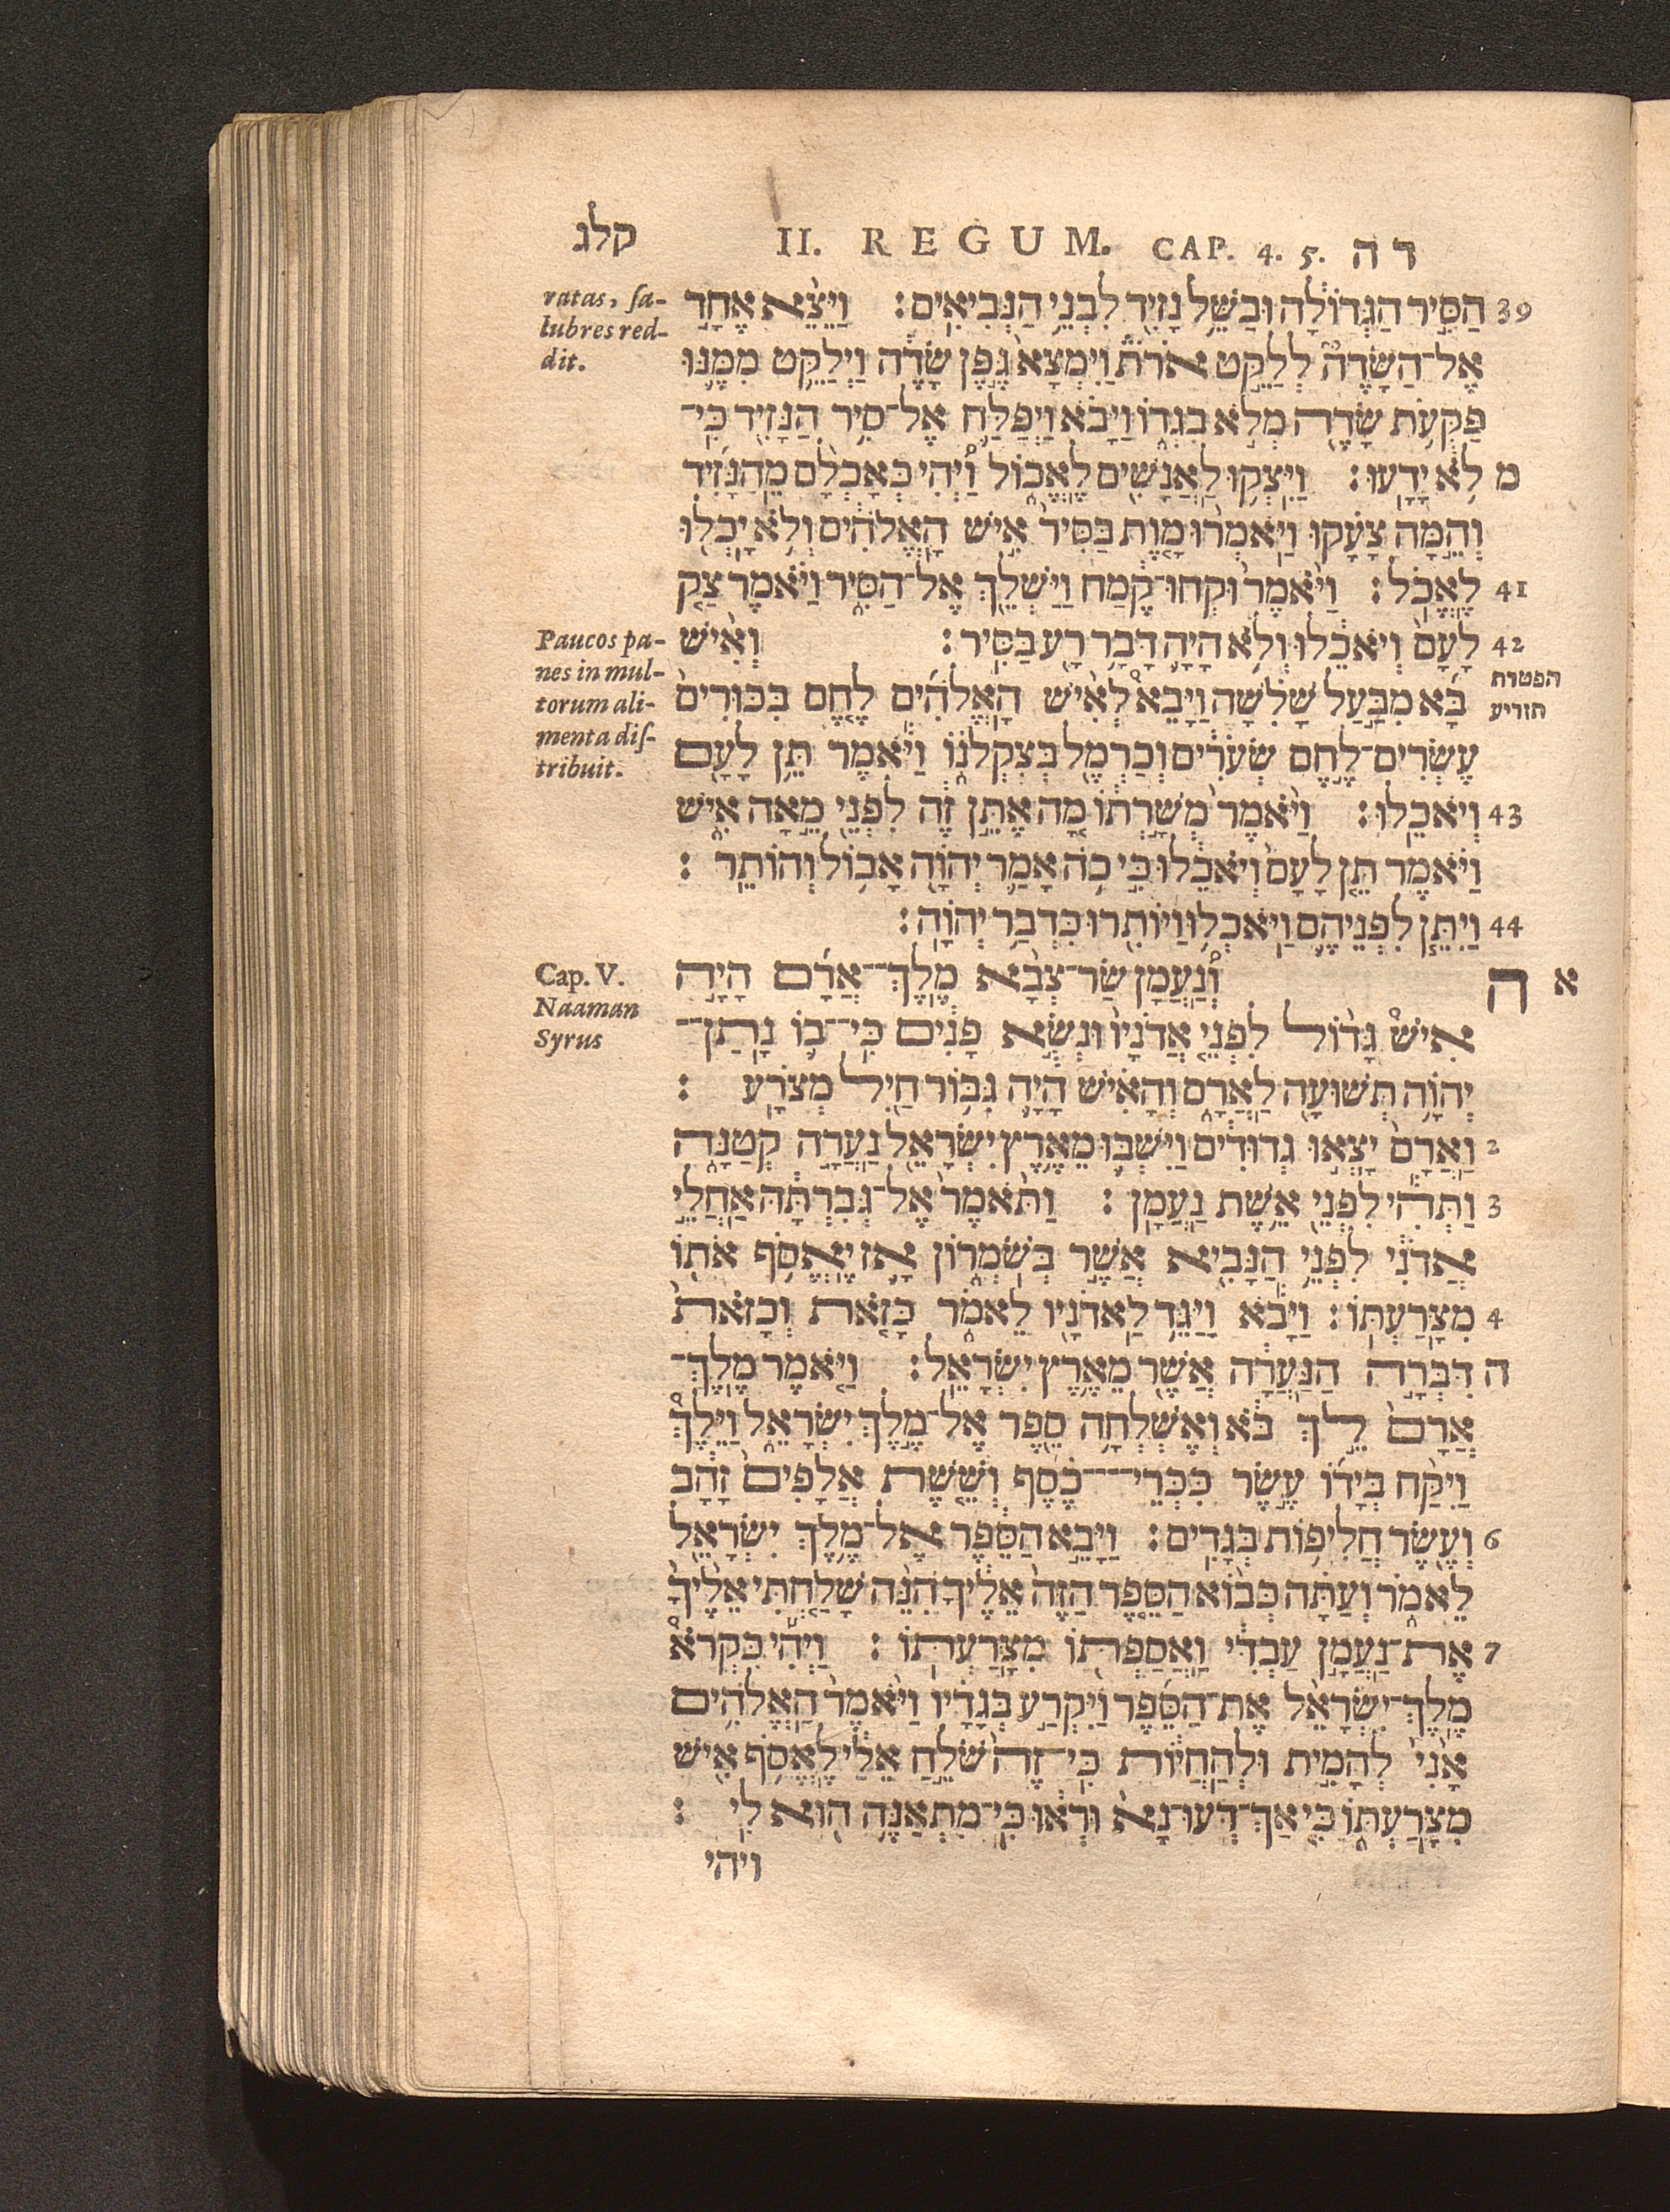 קלג II. REGUM. CAP. 4. 5. ד ה
ratas, sa-
lubres red-
dit.
39 הַסִּיר הַגְּדוֹלָה וּבַשֵּׁל נָזִיד לִבְנֵי הַנְּבִיאִים: וַיֵּצֵא אֶחָד
אֶל־הַשָּׂדֶה לְלַקֵּט אֹרֹת וַיִּמְצָא גֶּפֶן שָׂדֶה וַיְלַקֵּט מִמֶּנּוּ
פַּקֻּעֹת שָׂדֶה מְלֹא בִגְדוֹ וַיָּבֹא וַיְפַלַּח אֶל־סִיר הַנָּזִיד כִּי־
מ לֹא יָדָעוּ: וַיִּצְקוּ לַאֲנָשִׁים לֶאֱכוֹל וַיְהִי כְּאָכְלָם מֵהַנָּזִיד
וְהֵמָּה צָעָקוּ וַיֹּאמְרוּ מָוֶת בַּסִּיר אִישׁ הָאֱלֹהִים וְלֹא יָכְלוּ
41 לֶאֱכֹל: וַיֹּאמֶר וּקְחוּ־קֶמַח וַיַּשְׁלֵךְ אֶל־הַסִּיר וַיֹּאמֶר צַק
42 לָעָם וְיֹאכֵלוּ וְלֹא הָיָה דָּבָר רָע בַּסִּיר: וְאִישׁ
Paucos pa-
nes in mul-
torum ali-
menta dis-
tribuit.
הפטרת
תזריע
בָּא מִבַּעַל שָׁלִשָׁה וַיָּבֵא לְאִישׁ הָאֱלֹהִים לֶחֶם בִּכּוּרִים
עֶשְׂרִים־לֶחֶם שְׂעֹרִים וְכַרְמֶל בְּצִקְלֹנוֹ וַיֹּאמֶר תֵּן לָעָם
43 וְיֹאכֵלוּ: וַיֹּאמֶר מְשָׁרְתוֹ מָה אֶתֵּן זֶה לִפְנֵי מֵאָה אִישׁ
וַיֹּאמֶר תֵּן לָעָם וְיֹאכֵלוּ כִּי כֹה אָמַר יְהוָה אָכוֹל וְהוֹתֵר:
44 וַיִּתֵּן לִפְנֵיהֶם וַיֹּאכְלוּ וַיּוֹתִרוּ כִּדְבַר יְהוָה:
Cap. V.
Naaman
Syrus
א ה וְנַעֲמָן שַׂר־צְבָא מֶלֶךְ־אֲרָם הָיָה
אִישׁ גָּדוֹל לִפְנֵי אֲדֹנָיו וּנְשֻׂא פָנִים כִּי־בוֹ נָתַן־
יְהוָה תְּשׁוּעָה לַאֲרָם וְהָאִישׁ הָיָה גִּבּוֹר חַיִל מְצֹרָע:
2 וַאֲרָם יָצְאוּ גְדוּדִים וַיִּשְׁבּוּ מֵאֶרֶץ יִשְׂרָאֵל נַעֲרָה קְטַנָּה
3 וַתְּהִי לִפְנֵי אֵשֶׁת נַעֲמָן: וַתֹּאמֶר אֶל־גְּבִרְתָּהּ אַחֲלֵי
אֲדֹנִי לִפְנֵי הַנָּבִיא אֲשֶׁר בְּשֹׁמְרוֹן אָז יֶאֱסֹף אֹתוֹ
4 מִצָּרַעְתּוֹ: וַיָּבֹא וַיַּגֵּד לַאדֹנָיו לֵאמֹר כָּזֹאת וְכָזֹאת
ה דִּבְּרָה הַנַּעֲרָה אֲשֶׁר מֵאֶרֶץ יִשְׂרָאֵל: וַיֹּאמֶר מֶלֶךְ־
אֲרָם לֶךְ בֹּא וְאֶשְׁלְחָה סֵפֶר אֶל־מֶלֶךְ יִשְׂרָאֵל וַיֵּלֶךְ
וַיִּקַּח בְּיָדוֹ עֶשֶׂר כִּכְּרֵי־כֶסֶף וְשֵׁשֶׁת אֲלָפִים זָהָב
6 וְעֶשֶׂר חֲלִיפוֹת בְּגָדִים: וַיָּבֵא הַסֵּפֶר אֶל־מֶלֶךְ יִשְׂרָאֵל
לֵאמֹר וְעַתָּה כְּבוֹא הַסֵּפֶר הַזֶּה אֵלֶיךָ הִנֵּה שָׁלַחְתִּי אֵלֶיךָ
7 אֶת־נַעֲמָן עַבְדִּי וַאֲסַפְתּוֹ מִצָּרַעְתּוֹ: וַיְהִי כִּקְרֹא
מֶלֶךְ־יִשְׂרָאֵל אֶת־הַסֵּפֶר וַיִּקְרַע בְּגָדָיו וַיֹּאמֶר הַאֱלֹהִים
אָנִי לְהָמִית וּלְהַחֲיוֹת כִּי־זֶה שֹׁלֵחַ אֵלַי לֶאֱסֹף אִישׁ
מִצָּרַעְתּוֹ כִּי אַךְ־דְּעוּ־נָא וּרְאוּ כִּי־מִתְאַנֶּה הוּא לִי:
ויהי